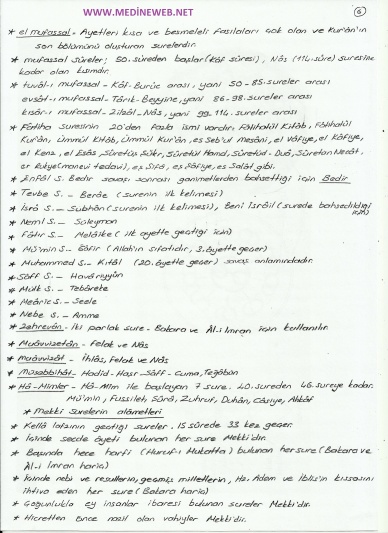 www.MEDINEWEB.NET
6
* el mufassal - Ayetleri kısa ve besmeleli fasılaları çok olan ve Kur'ân'ın
son bölümünü oluşturan surelerdir.
* mufassal sûreler; 50. sûreden başlar (Kâf sûresi), Nâs (114. sûre) suresine
kadar olan kısımdır.
* tuvâl-ı mufassal - Kâf-Burûc arası, yani 50-85. sureler arası
evsât-ı mufassal - Târık-Beyyine, yani 86-98. sureler arası
kısâr-ı mufassal - Zilzâl-Nâs, yani 99. 114. sureler arası
* Fâtiha Suresinin 20'den fazla ismi vardır: Fâtihatül Kitâb, Fâtihatül
Kur'an, Ümmül Kitâb, Ümmül Kur'ân, es Seb'ul Mesâni, el Vâfiye, el Kâfiye,
el Kenz, el Esâs, Sûretüş Şükr, Sûretül Hamd, Sûretüd-Duâ, Sûretün Necât,
er Rukye (manevi tedavi), eş Şifâ, eş Şâfiye, es Salât gibi.
* Enfâl S. Bedir savaşı sonrası ganimetlerden bahsettiği için Bedir
* Tevbe S. - Berâe (surenin ilk kelimesi)
* İsrâ S. - Subhân (surenin ilk kelimesi), Beni İsrâil (surede bahsedildiği
için)
* Neml S. - Süleyman
* Fâtır S. - Melâike (ilk ayette geçtiği için)
* Mü'min S. - Ğâfir (Allah'ın sıfatıdır, 3. âyette geçer)
* Muhammed S. - Kıtâl (20. âyette geçer) savaş anlamındadır.
* Sâff S. - Havâriyyûn
* Mülk S. - Tebâreke
* Meâric S. - Seele
* Nebe S. - Amme
* Zehrevân - İki parlak sure - Bakara ve Âl-i İmran için kullanılır.
* Muavvizetân - Felak ve Nâs
* Muavvizât - İhlâs, Felak ve Nâs
* Müsebbihât - Hadid - Haşr - Sâff - Cuma, Teğâbün
* Hâ-Mîmler - Hâ-Mîm ile başlayan 7 sure. 40. sureden 46. sureye kadar.
Mü'min, Fussilet, Şûrâ, Zuhruf, Duhân, Câsiye, Ahkâf
* Mekki surelerin alâmetleri
* Kellâ lafzının geçtiği sureler. 15 sûrede 33 kez geçer.
* İçinde secde âyeti bulunan her sure Mekki'dir.
* Başında hece harfi (Huruf-ı Mukatta) bulunan her sure (Bakara ve
Âl-i İmran hariç)
* İçinde nebi ve resullerin, geçmiş milletlerin, Hz. Adem ve İblis'in kıssasını
ihtiva eden her sure (Bakara hariç)
* Çoğunlukla ey insanlar ibaresi bulunan sureler Mekki'dir.
* Hicretten önce nazil olan vahiyler Mekki'dir.